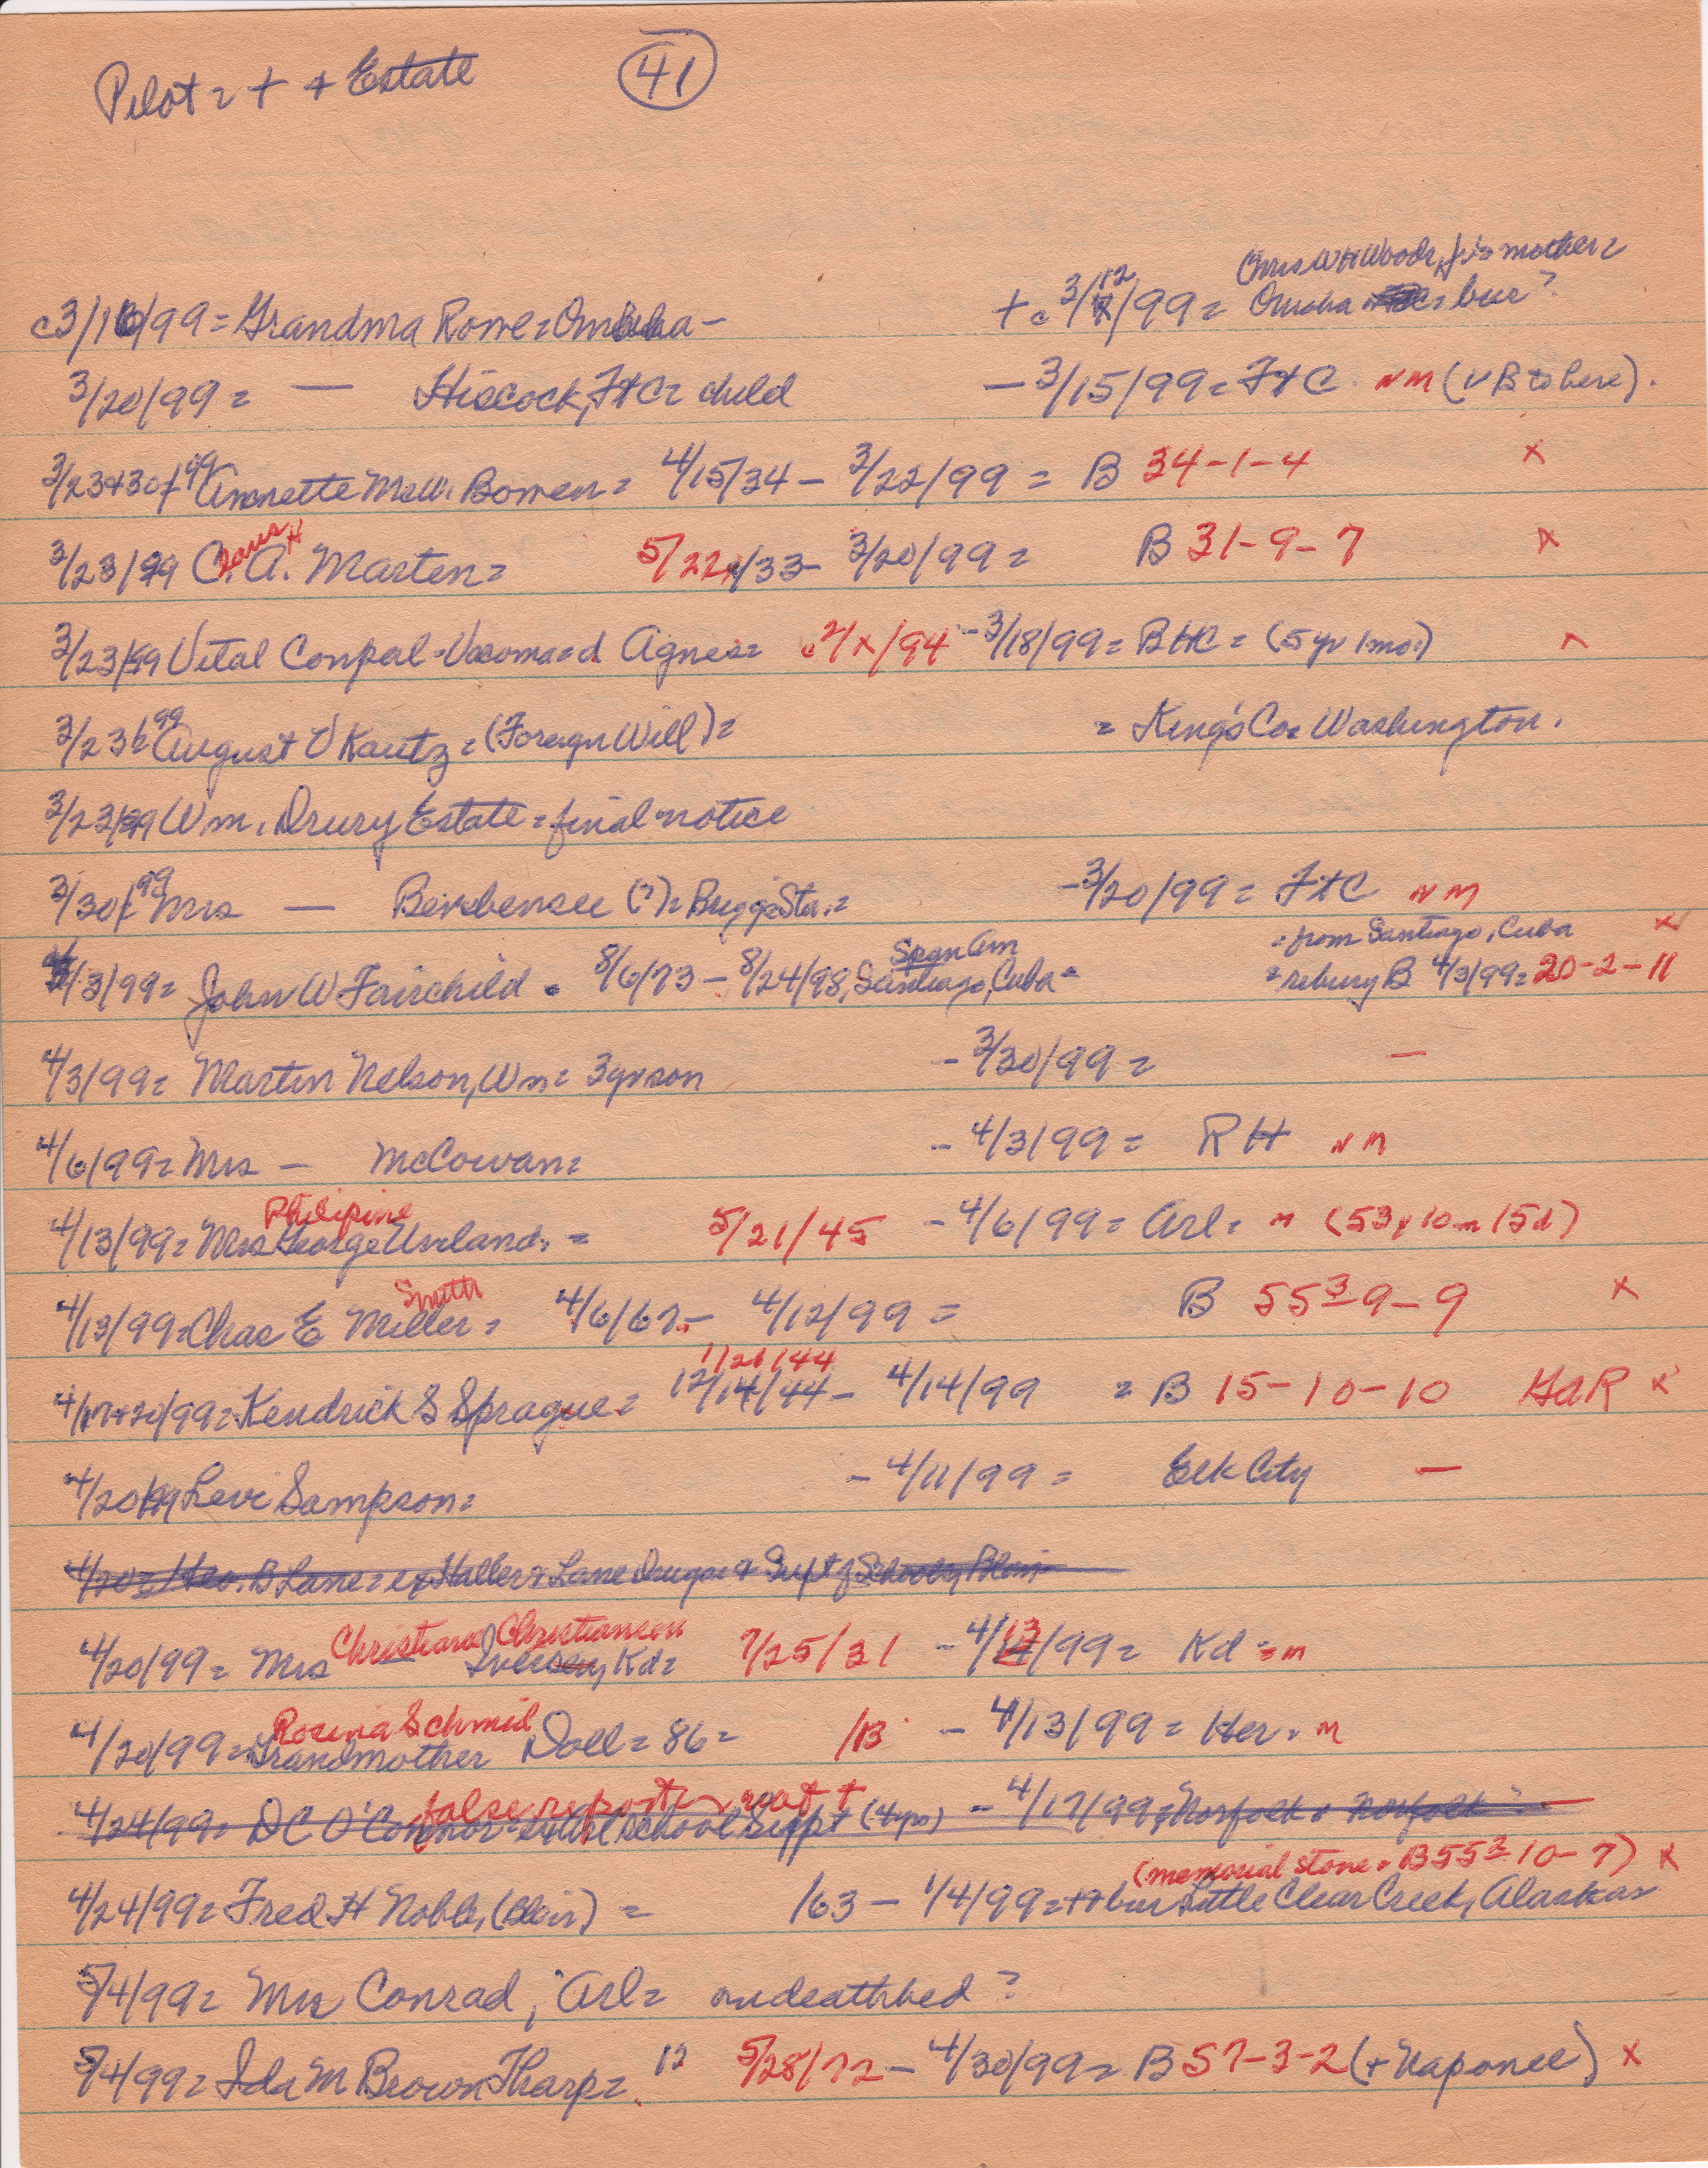 Pilot = + + Estate (41)
Chris W H Woods, Jr's mother =
c3/16/99 = Grandma Rowe = Omaha - + c 3/12/99 = Omaha = bur?
3/20/99 = — Hiscock, FtC = child - 3/15/99 = FtC NM (v B to here).
3/23+30/99 Annette Bowen = 4/15/34 - 3/22/99 = B 34-1-4 x
3/23/99 C. A. Marten = 5/22/33 - 3/20/99 = B 31-9-7 x
3/23/99 Vital Compal = Vacoma = d Agnes = c 2/x/94 - 3/18/99 = BHC = (5 yr 1 mo.)
3/23/99 August V Kautz = (Foreign Will) = = King's Co. Washington.
3/23/99 Wm. Drury Estate = final notice
3/30/99 Mrs — (?) = Briggs Sta. = - 3/20/99 = FtC NM
Span Am = from Santiago, Cuba x
4/3/99 = John W Fairchild = 8/6/73 - 8/24/98, Santiago, Cuba = = rebury B 4/3/99 = 20-2-11
4/3/99 = Martin Nelson, Wn = 3 yr son - 3/30/99 = —
4/6/99 = Mrs — McCowan = - 4/3/99 = RH NM
Philipine
4/13/99 = Mrs George Umland. = 5/21/45 - 4/6/99 = Arl = m (53y 10m 15d)
Smith
4/13/99 = Chas E Miller = 4/6/67 - 4/12/99 = B 55³-9-9 x
11/26/44
4/17+20/99 = Kendrick S Sprague = 12/14/44 - 4/14/99 = B 15-10-10 GAR x
4/20/99 Levi Sampson = - 4/11/99 = Elk City —
4/20 = Geo. B Lane = ex Haller & Lane Drugs & Supt of Schools, Blair
Christiane Christiansen
4/20/99 = Mrs Iversen, Kd = 7/25/31 - 4/13/99 = Kd = m
Rosina Schmid
4/20/99 = Grandmother Doll = 86 = /13 - 4/13/99 = Her = m
false report = not +
4/24/99 = D C O'Connor = school Suppt (4 yrs) - 4/17/99 = Norfolk = Norfolk —
(memorial stone = B 55² 10-7) x
4/24/99 = Fred H Noble, (Blair) = /63 - 1/4/99 = + + bur Little Clear Creek, Alaska
5/4/99 = Mrs Conrad, Arl = on deathbed?
5/4/99 = Ida M Brown Tharp = 12 5/28/72 - 4/30/99 = B 57-3-2 (+ Naponee) x